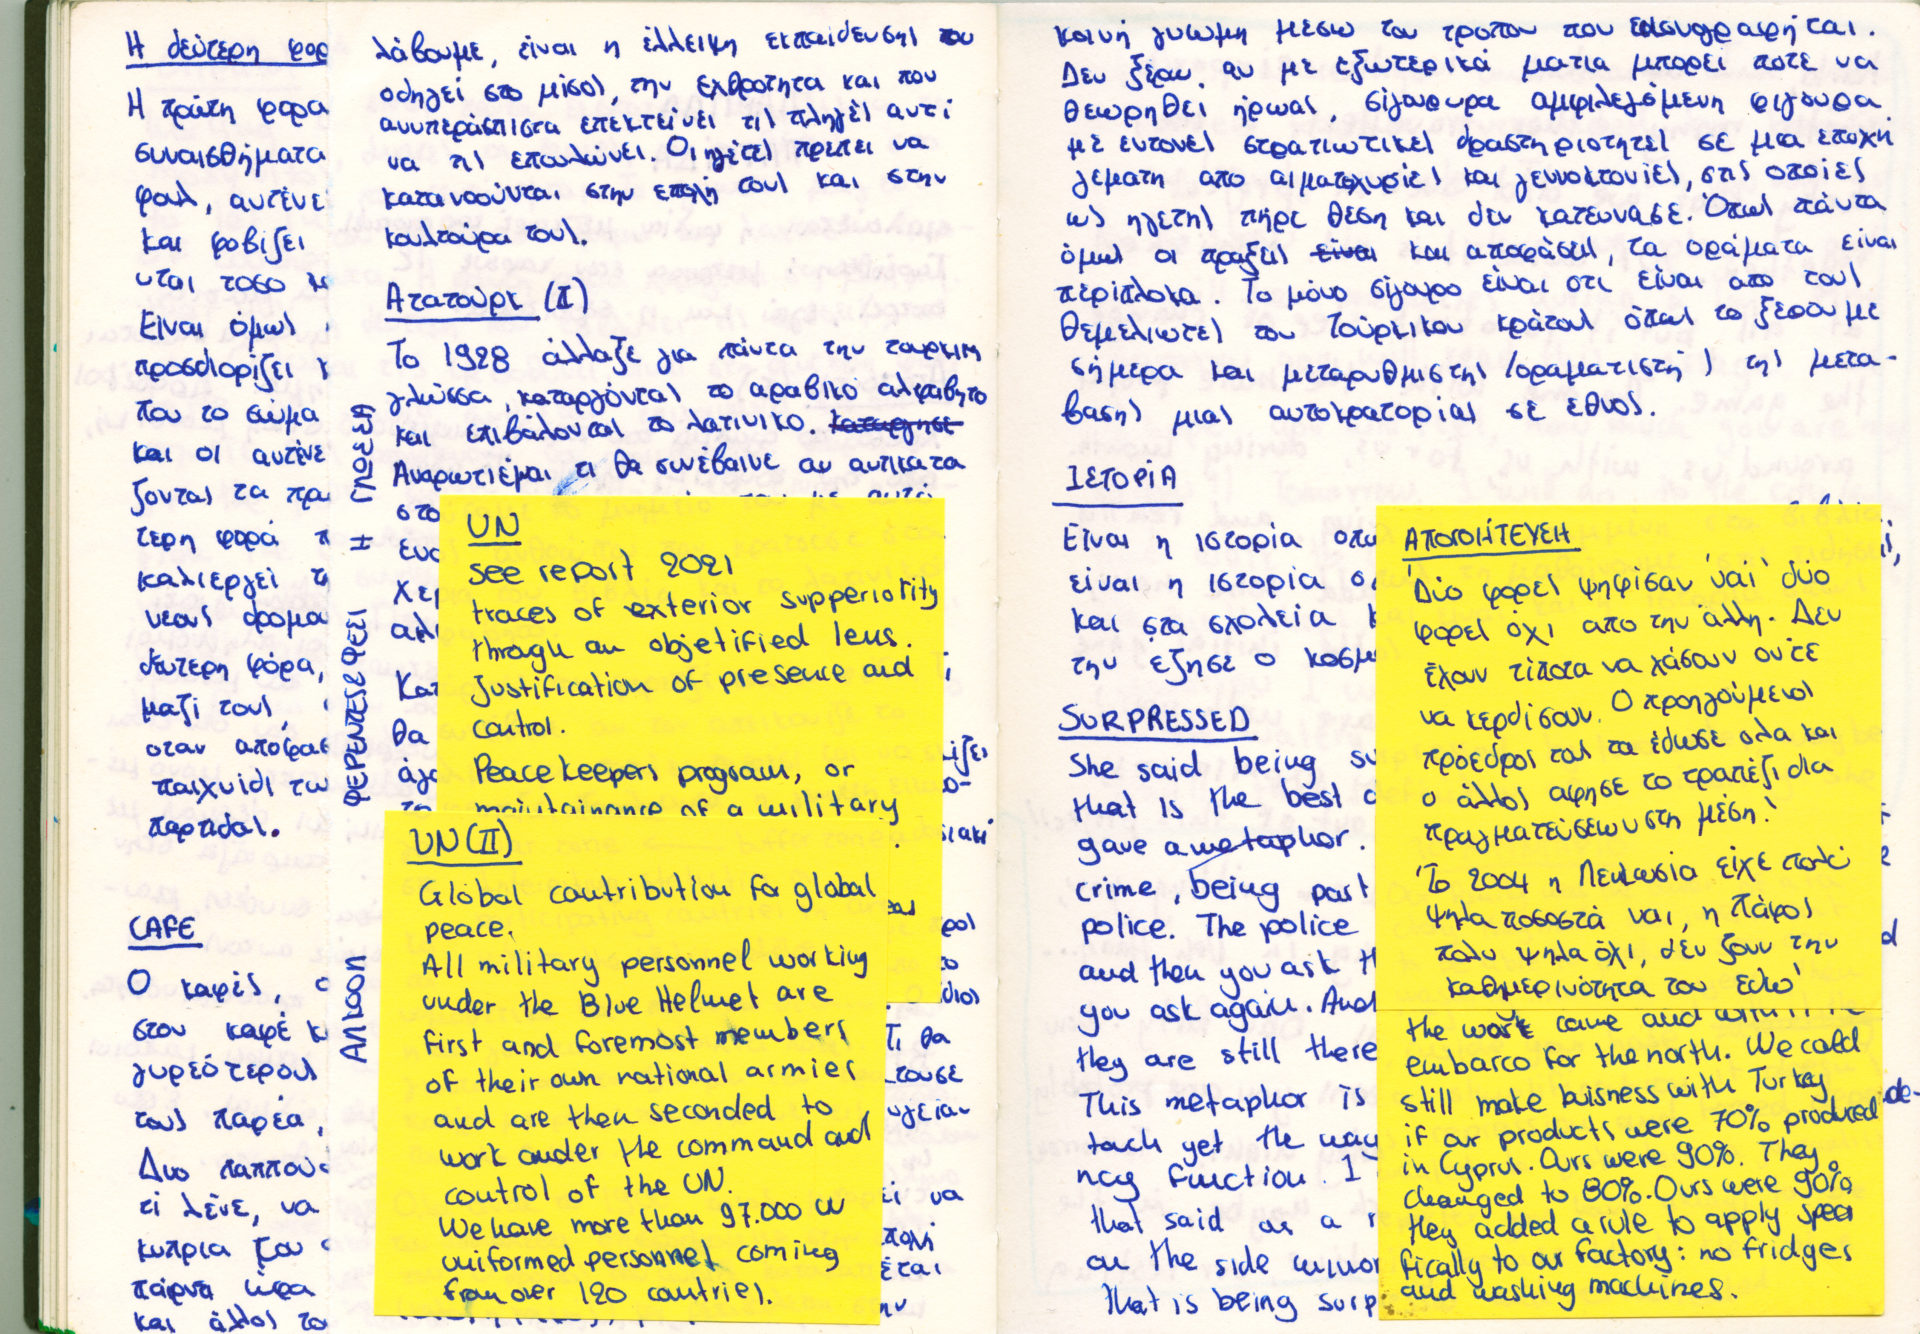 Η δεύτερη φορ
Η πρώτη φορα
συναισθήματα
φουλ, αυτένε
και φοβίζει
νται τοσο
Είναι όμως
προσδιορίζει
που το σώμα
και οι αυτένε
ζονται τα πρα
τερη φορά π
καλιεργεί τ
νεους δρομα
δευτερη φόρα,
μαζί τους,
οταν αποφασ
παιχνιδι τω
παρτιδας.
CAFE
Ο καφές, ο
στον καφέ κ
γυρεότερους
τους παρέα,
Δυο παππού
τί λένε, να
κυπρια ζου
πάρνα ώρα
και άλλος το
ΑΛΚΟΟΛ ΦΕΡΕΝΤΕΣΕ ΦΕΣΙ Η ΓΛΩΣΣΑ
λάβουμε, είναι η έλλειψη εκπαίδευσης που
οδηγεί στο μίσος, την εχθρότητα και που
ανυπεράσπιστα επεκτείνει τις πληγές αντί
να τις επουλώνει. Οι ηγέτες πρεπει να
κατανοούνται στην εποχή τους και στην
κουλτούρα τους.
Ατατούρκ (II)
Το 1928 άλλαξε για πάντα την τουρκικη
γλώσσα, καταργόντας το αραβικό αλφάβητο
και επιβάλοντας το λατινικο. κατάργησε
Αναρωτιέμαι τι θα συνέβαινε αν αντικατα
στο
ενο
χερ
αλι
Κατ
θα
άγο
UN
see report 2021
traces of exterior supperiority
through an objetified lens.
Justification of presence and
control.
Peacekeepers program, or
maintainance of a military
UN (II)
Global contribution for global
peace.
All military personnel working
under the Blue Helmet are
first and foremost members
of their own national armies
and are then seconded to
work onder the command and
control of the UN.
We have more than 97.000 UN
uniformed personnel coming
from over 120 countries.
κοινή γνώμη μέσω του τροπου που
Δεν ξέρω αν με εξωτερικά ματια μπορεί ποτε να
θεωρηθεί ήρωας, σίγουρα αμφιλεγόμενη φιγούρα
με εντονες στρατιωτικες δραστηριοτητες σε μια εποχή
γεματη απο αιματοχυσίες και γενοκτονίες, στις οποίες
ως ηγετης πήρε θέση και δεν κατευνασε. Οπως πάντα
όμως οι πραξεις είναι και αποφάσεις, τα οράματα είναι
περίπλοκα. Το μόνο σίγουρο είναι οτι είναι απο τους
θεμελιωτες του Τούρκικου κράτους όπως το ξέρουμε
σήμερα και μεταρυθμιστης (οραματιστής) της μετα-
βασης μιας αυτοκρατορίας σε εθνος.
ΙΣΤΟΡΙΑ
Είναι η ιστορία οπω
είναι η ιστορία σ
και στα σχολεία κ
την έζησε ο κοσμ
SURPRESSED
She said being su
that is the best
gave a metaphor.
crime, being part
police. The police
and then you ask th
you ask again. And
they are still there
This metaphor is
touch yet the way
ncy function. I
that said on a r
on the side mirror
that is being surp
ΑΠΟΓΟΗΤΕΥΣΗ
Δύο φορες ψηφισαν 'ναί' δύο
φορες όχι απο την άλλη. Δεν
έχουν τίποτα να χάσουν ούτε
να κερδίσουν. Ο προηγούμενος
πρόεδρος τους τα έδωσε ολα και
ο άλλος αφησε το τραπέζι δια
πραγματεύσεων στη μέση!
'Το 2004 η Λευκωσία είχε πολύ
ψηλα ποσοστά ναι, η Πάφος
πολυ ψηλα όχι, δεν ζουν την
καθημερινότητα του εδω'
the work came and with it the
embarco for the north. We cold
still make buisness with Turkey
if our products were 70% produced
in Cyprus. Ours were 90%. They
changed to 80%. Ours were 90%
they added a rule to apply speci
fically to our factory: no fridges
and washing machines.